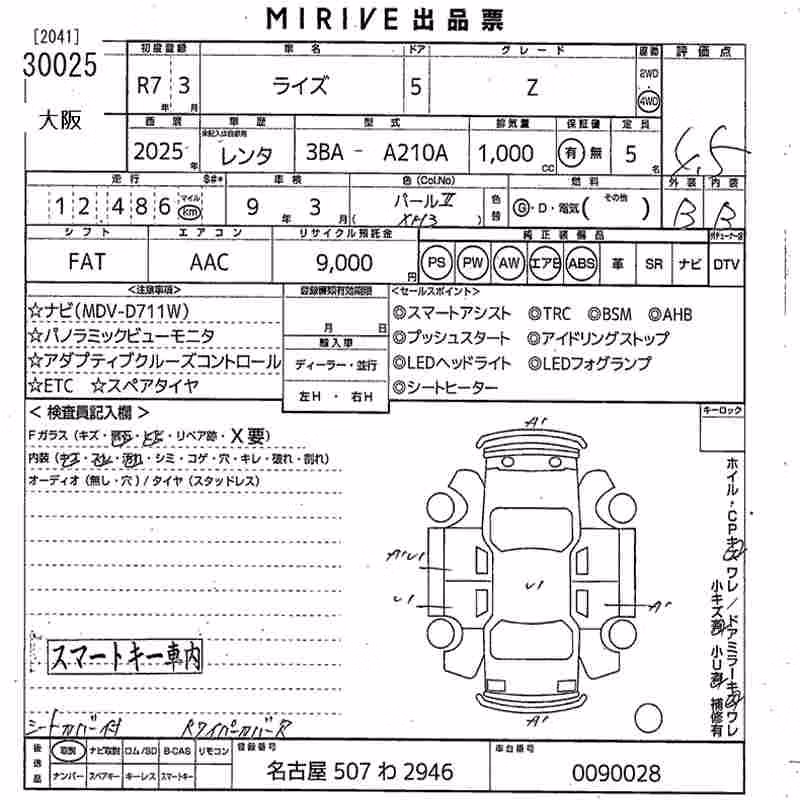 MIRIVE 出品票
[2041]
30025
大阪
初度登録 車名 ドア グレード 駆動 評価点
R7 3 ライズ 5 Z 2WD 4WD
年 月
4.5
西暦 車歴 型式 排気量 保証書 定員
2025年 レンタ 3BA - A210A 1,000cc 有 無 5名
走行 車検 色(Col.No) 燃料 外装 内装
12486 マイル km 9年3月 パールⅡ 色替 G・D・電気( その他 ) B B
シフト エアコン リサイクル預託金 純正装備品
FAT AAC 9,000円 PS PW AW エアB ABS 革 SR ナビ DTV
<注意事項> 登録書類有効期限 <セールスポイント>
☆ナビ(MDV-D711W) ◎スマートアシスト ◎TRC ◎BSM ◎AHB
☆パノラミックビューモニタ 月 日 ◎プッシュスタート ◎アイドリングストップ
輸入車
☆アダプティブクルーズコントロール ディーラー・並行 ◎LEDヘッドライト ◎LEDフォグランプ
☆ETC ☆スペアタイヤ 左H ・ 右H ◎シートヒーター
<検査員記入欄> キーロック
Fガラス(キズ・飛石・ヒビ・リペア跡・X要)
内装(キズ・スレ・汚れ・シミ・コゲ・穴・キレ・破れ・割れ)
オーディオ(無し・穴)/タイヤ(スタッドレス)
A1
A1U1
U1
U1
A1
A1
ホイル・CPキズ ワレ/ドアミラーキズ ワレ
小キズ有 小U有 補修有
スマートキー車内
シートカバー付 Rワイパーカバー欠
後送品 取説 ナビ取説 ロム/SD B-CAS リモコン 登録番号 車台番号
ナンバー スペアキー キーレス スマートキー 名古屋 507 わ 2946 0090028